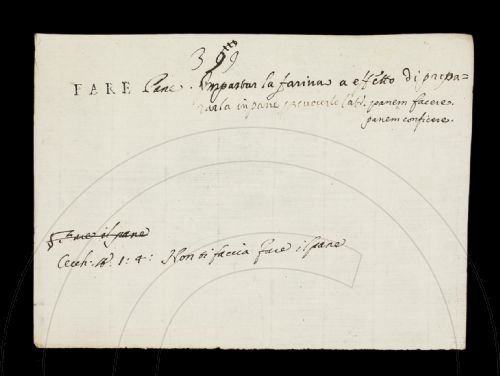 399
FARE Pane. Impastar la farina a effetto di prepa=
rarla in pane p cuocerlo Lat. panem facere.
panem conficere.
§. Fare il pane
Cecch: 1: 4: Non si faccia fare il pane